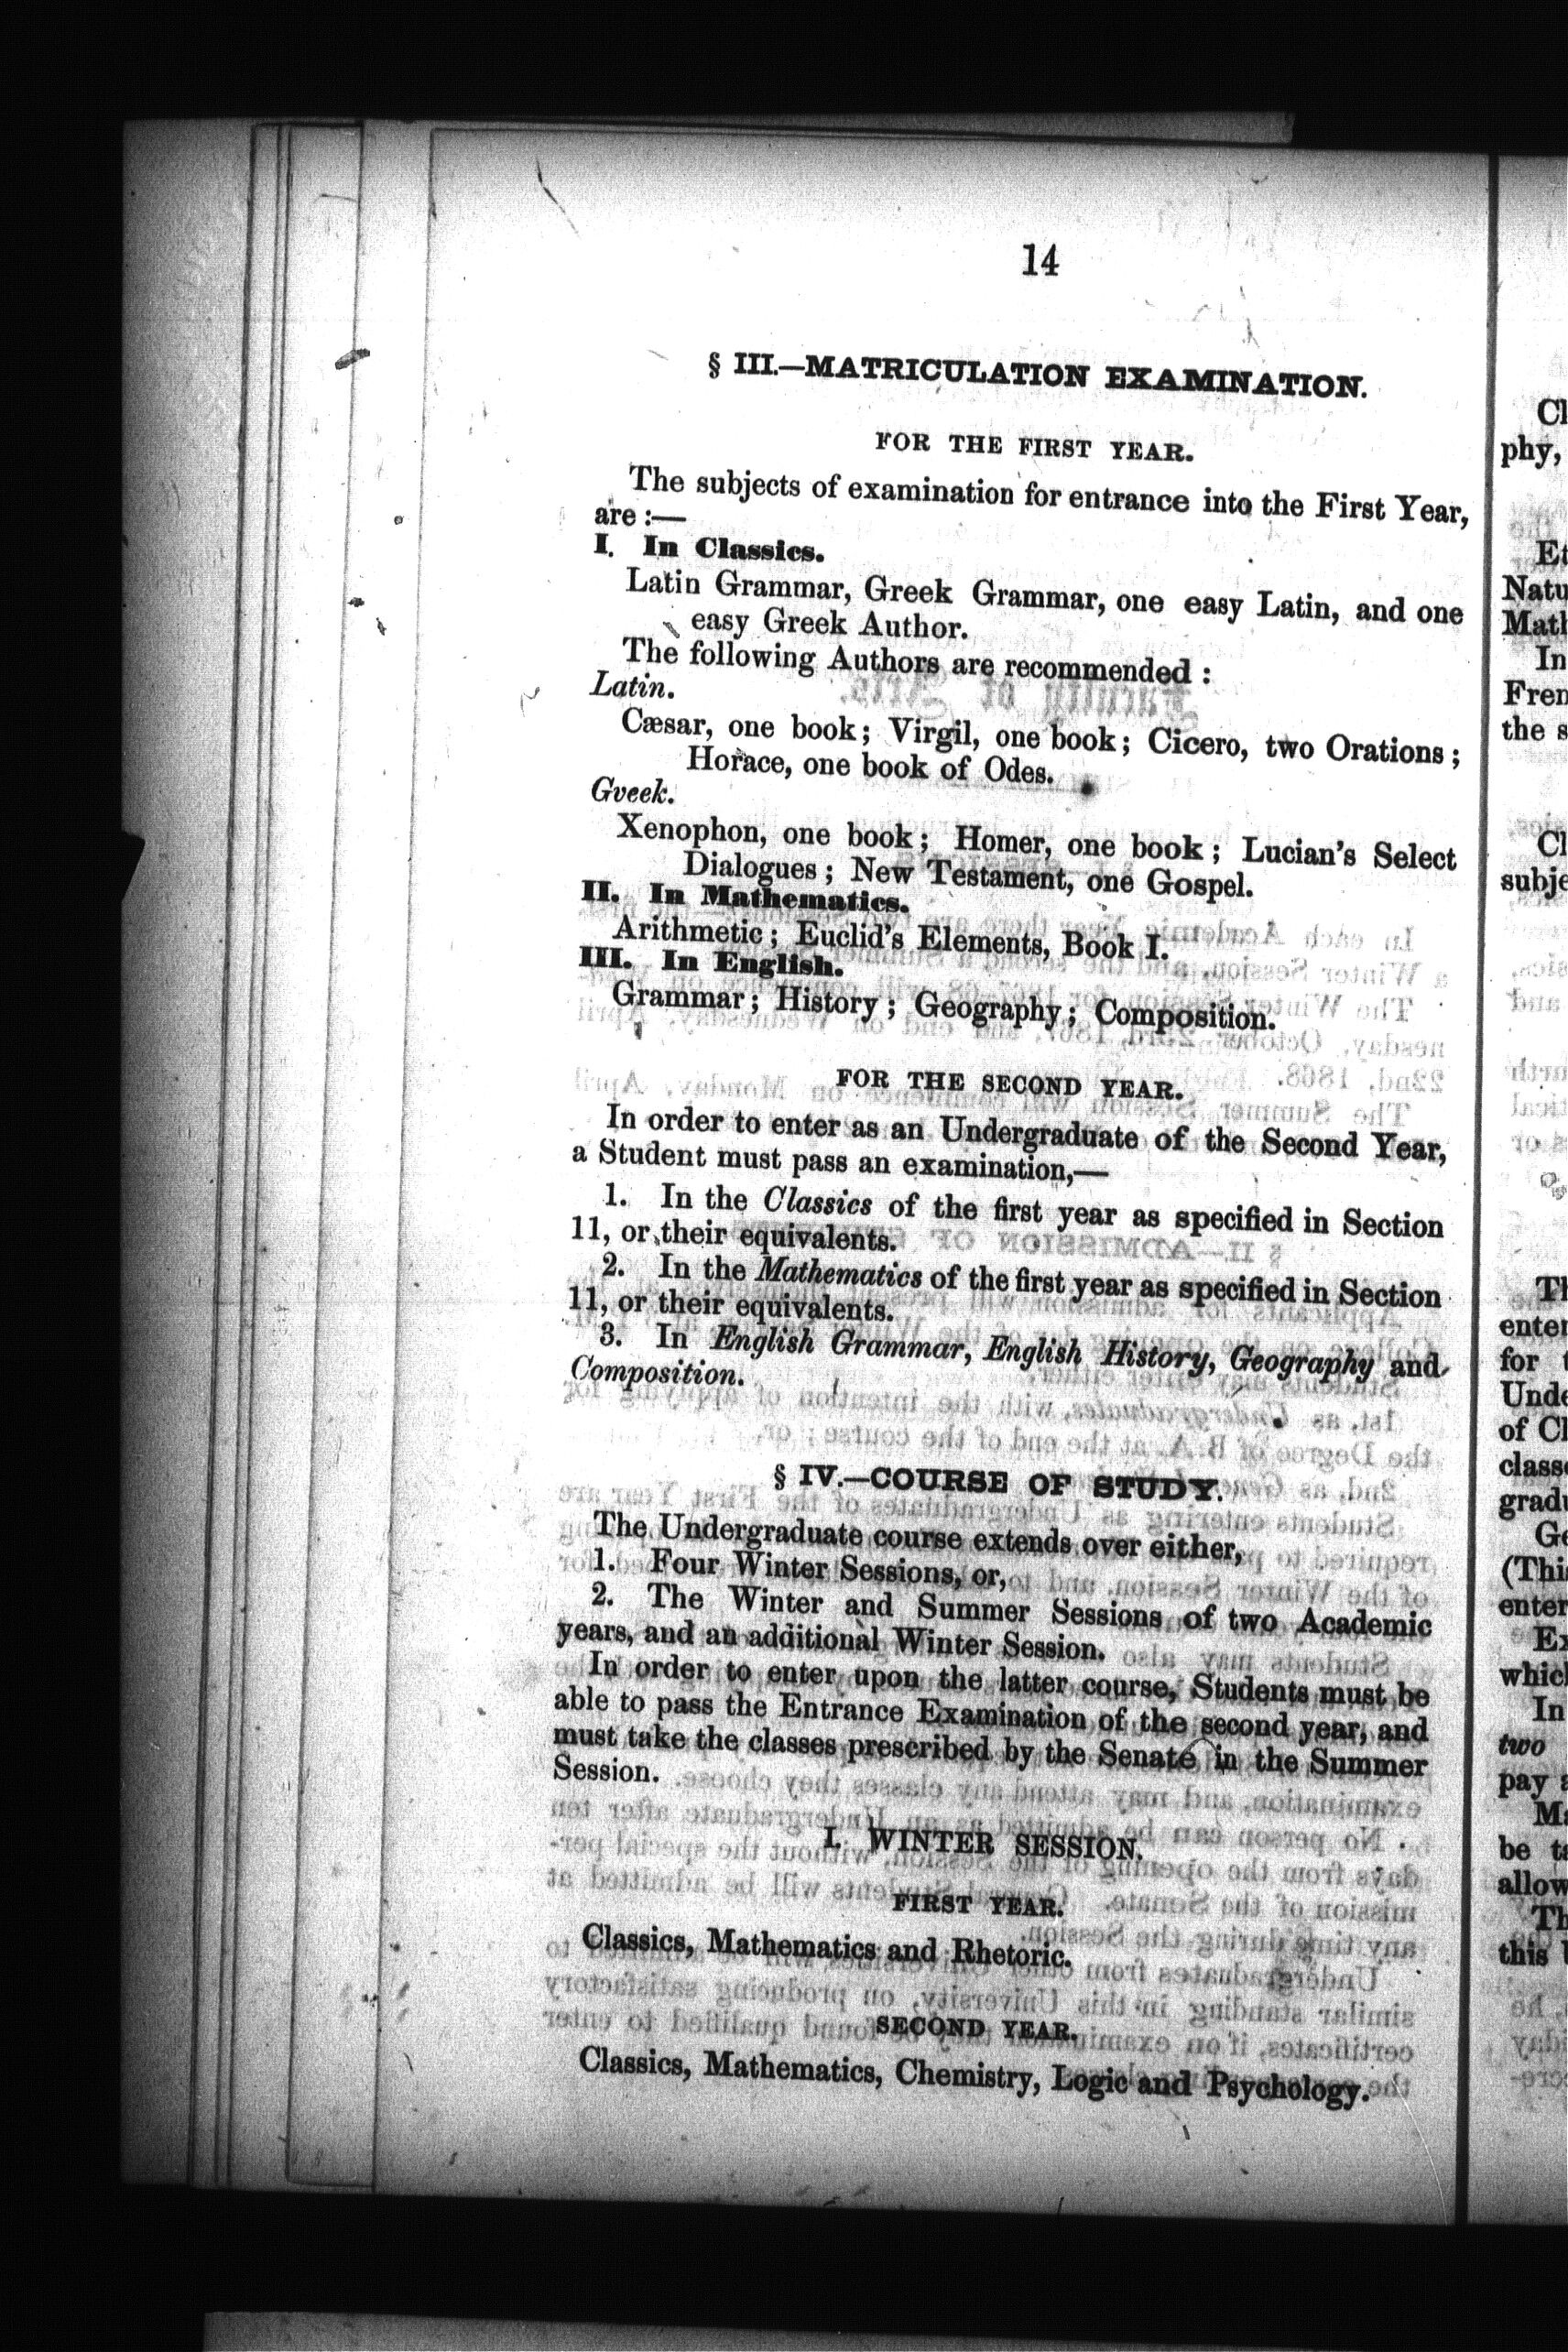 14
§ III.—MATRICULATION EXAMINATION.
FOR THE FIRST YEAR.
The subjects of examination for entrance into the First Year,
are :—
I. In Classics.
Latin Grammar, Greek Grammar, one easy Latin, and one
easy Greek Author.
The following Authors are recommended :
Latin.
Cæsar, one book; Virgil, one book; Cicero, two Orations;
Horace, one book of Odes.
Gveek.
Xenophon, one book; Homer, one book; Lucian's Select
Dialogues; New Testament, one Gospel.
II. In Mathematics.
Arithmetic; Euclid's Elements, Book I.
III. In English.
Grammar; History; Geography; Composition.
FOR THE SECOND YEAR.
In order to enter as an Undergraduate of the Second Year,
a Student must pass an examination,—
1. In the Classics of the first year as specified in Section
11, or their equivalents.
2. In the Mathematics of the first year as specified in Section
11, or their equivalents.
3. In English Grammar, English History, Geography and
Composition.
§ IV.—COURSE OF STUDY.
The Undergraduate course extends over either,
1. Four Winter Sessions, or,
2. The Winter and Summer Sessions of two Academic
years, and an additional Winter Session.
In order to enter upon the latter course, Students must be
able to pass the Entrance Examination of the second year, and
must take the classes prescribed by the Senate in the Summer
Session.
I. WINTER SESSION.
FIRST YEAR.
Classics, Mathematics and Rhetoric.
SECOND YEAR.
Classics, Mathematics, Chemistry, Logic and Psychology.
Cl
phy,
Et
Natu
Math
In
Fren
the s
Cl
subje
Th
enter
for
Unde
of Cl
class
gradu
Ge
(This
enter
Ex
which
In
two
pay a
Ma
be ta
allow
Th
this